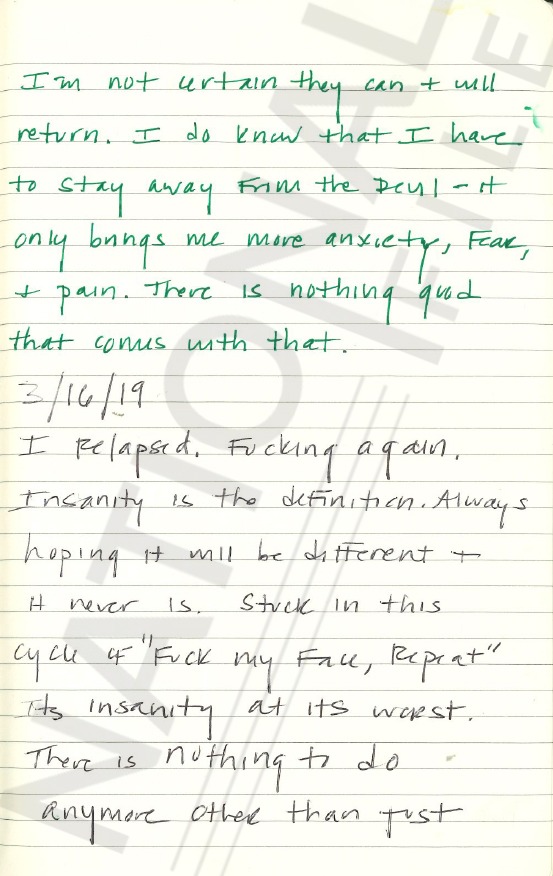 I'm not certain they can + will
return. I do know that I have
to stay away From the Devil - it
only brings me more anxiety, Fear,
+ pain. There is nothing good
that comes with that.
3/16/19
I Relapsed. Fucking again.
Insanity is the definition. Always
hoping it will be different +
it never is. Stuck in this
cycle of "Fuck my Face, Repeat"
Its insanity at its worst.
There is nothing to do
anymore other than just
NATIONAL
FILE